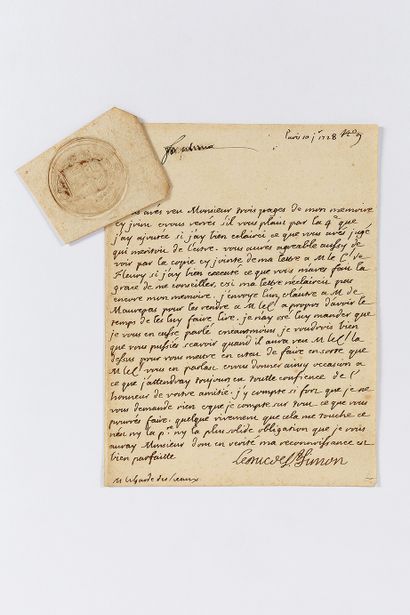 Paris 10 j.r 1728 N.o 9
avés veu Monsieur trois pages de mon memoire
cy joint envous verrés s'il vous plaist par la 4.e que
j'ay ajoutée si j'ay bien eclairci ce que vous avés jugé
qui meritoit de l'estre. vous aurés agreable aussy de
voir par la copie cy jointe de ma lettre a M le C.l de
Fleury si j'ay bien executé ce que vous m'avés fait la
grace de me conseiller, et si ma lettre n'eclaircit pas
encore mon memoire. j'envoye l'un et l'autre a M de
Maurepas pour les rendre a M le C.l a propos d'avoir le
temps de les luy faire lire. je n'ay osé luy mander que
je vous en eusse parlé, neantmoins je voudrois bien
que vous pussiés scavoir quand il aura veu M le C.l la
dessus pour vous mettre en estat de faire en sorte que
M le C.l vous en parlast et vous donner ainsy occasion a
ce que j'attendray toujours en toutte confience de l'
honneur de vostre amitié. j'y compte si fort que je ne
vous demande rien et que je compte sur tout ce que vous
pourés faire. quelque vivement que cela me touche ce
n'est ny la p.re ny la plus solide obligation que je vous
auray Monsieur dont en verité ma reconnoissance est
bien parfaitte
Le Duc de S.t Simon
M le Garde des Sceaux